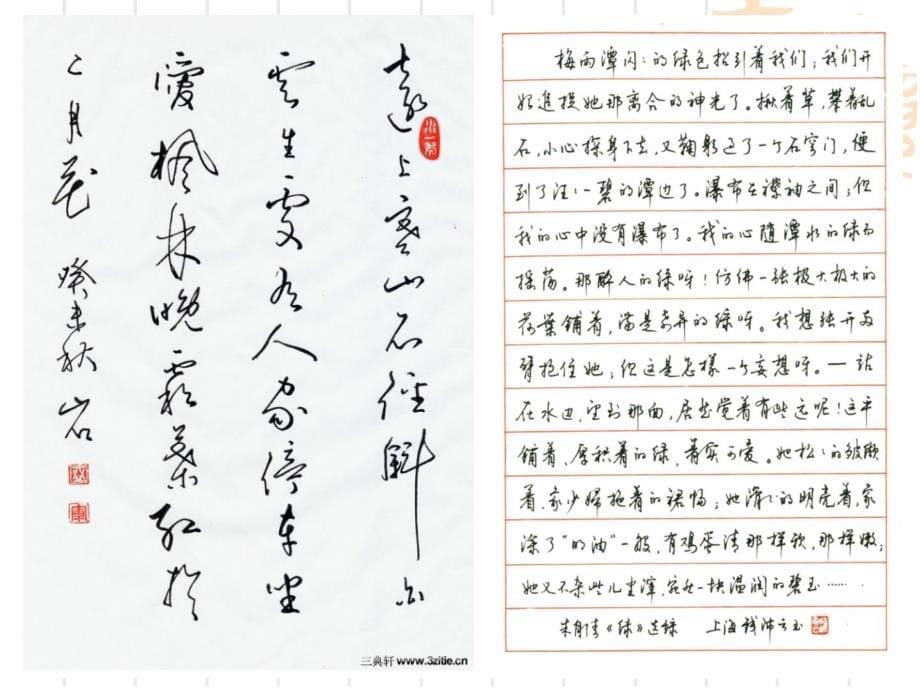 遠上寒山石徑斜白
雲生處有人家停車坐
愛楓林晚霜葉紅於
二月花 癸未秋 岩
三典轩 www.3zitie.cn
梅雨潭闪〻的绿色招引着我们；我们开
始追捉她那离合的神光了。揪着草，攀着乱
石，小心探身下去，又鞠躬过了一个石穹门，便
到了汪〻一碧的潭边了。瀑布在襟袖之间；但
我的心中没有瀑布了。我的心随潭水的绿而
摇荡。那醉人的绿呀！仿佛一张极大极大的
荷葉铺着，满是奇异的绿呀。我想张开两
臂抱住她；但这是怎样一个妄想呀。—站
在水边，望到那面，居然觉着有些远呢！这平
铺着、厚积着的绿，着实可爱。她松〻的皱缬
着，象少婦拖着的裙幅；她滑〻的明亮着，象
涂了“的油”一般，有鸡蛋清那样软，那样嫩；
她又不杂些儿尘滓，宛然一块温润的碧玉……
朱自清《绿》选录 上海钱沛云书